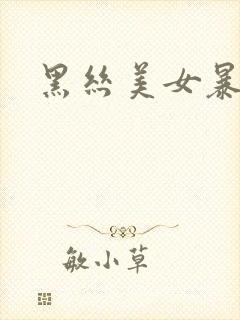 黑丝美女暴
敏小草